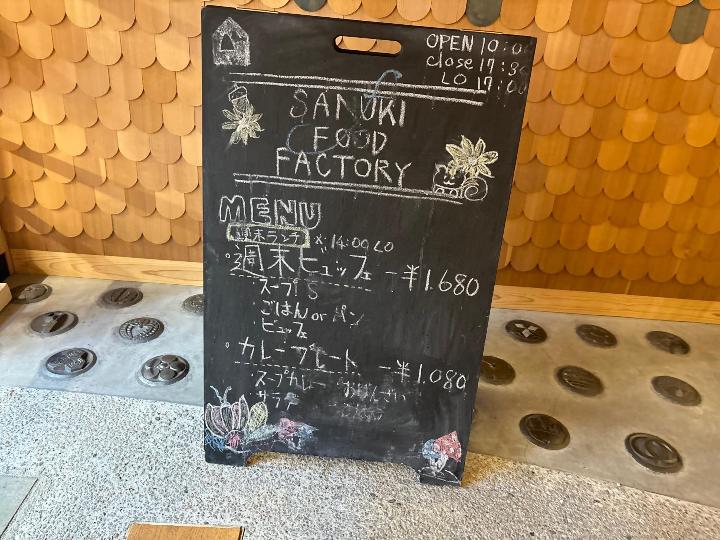 OPEN 10:00
close 17:30
LO 17:00
SANUKI
FOOD
FACTORY
MENU
週末ランチ ※14:00LO
週末ビュッフェ -¥1.680
スープ
ごはん or パン
ビュッフェ
カレープレート -¥1.080
スープカレー おばんざい
サラダ